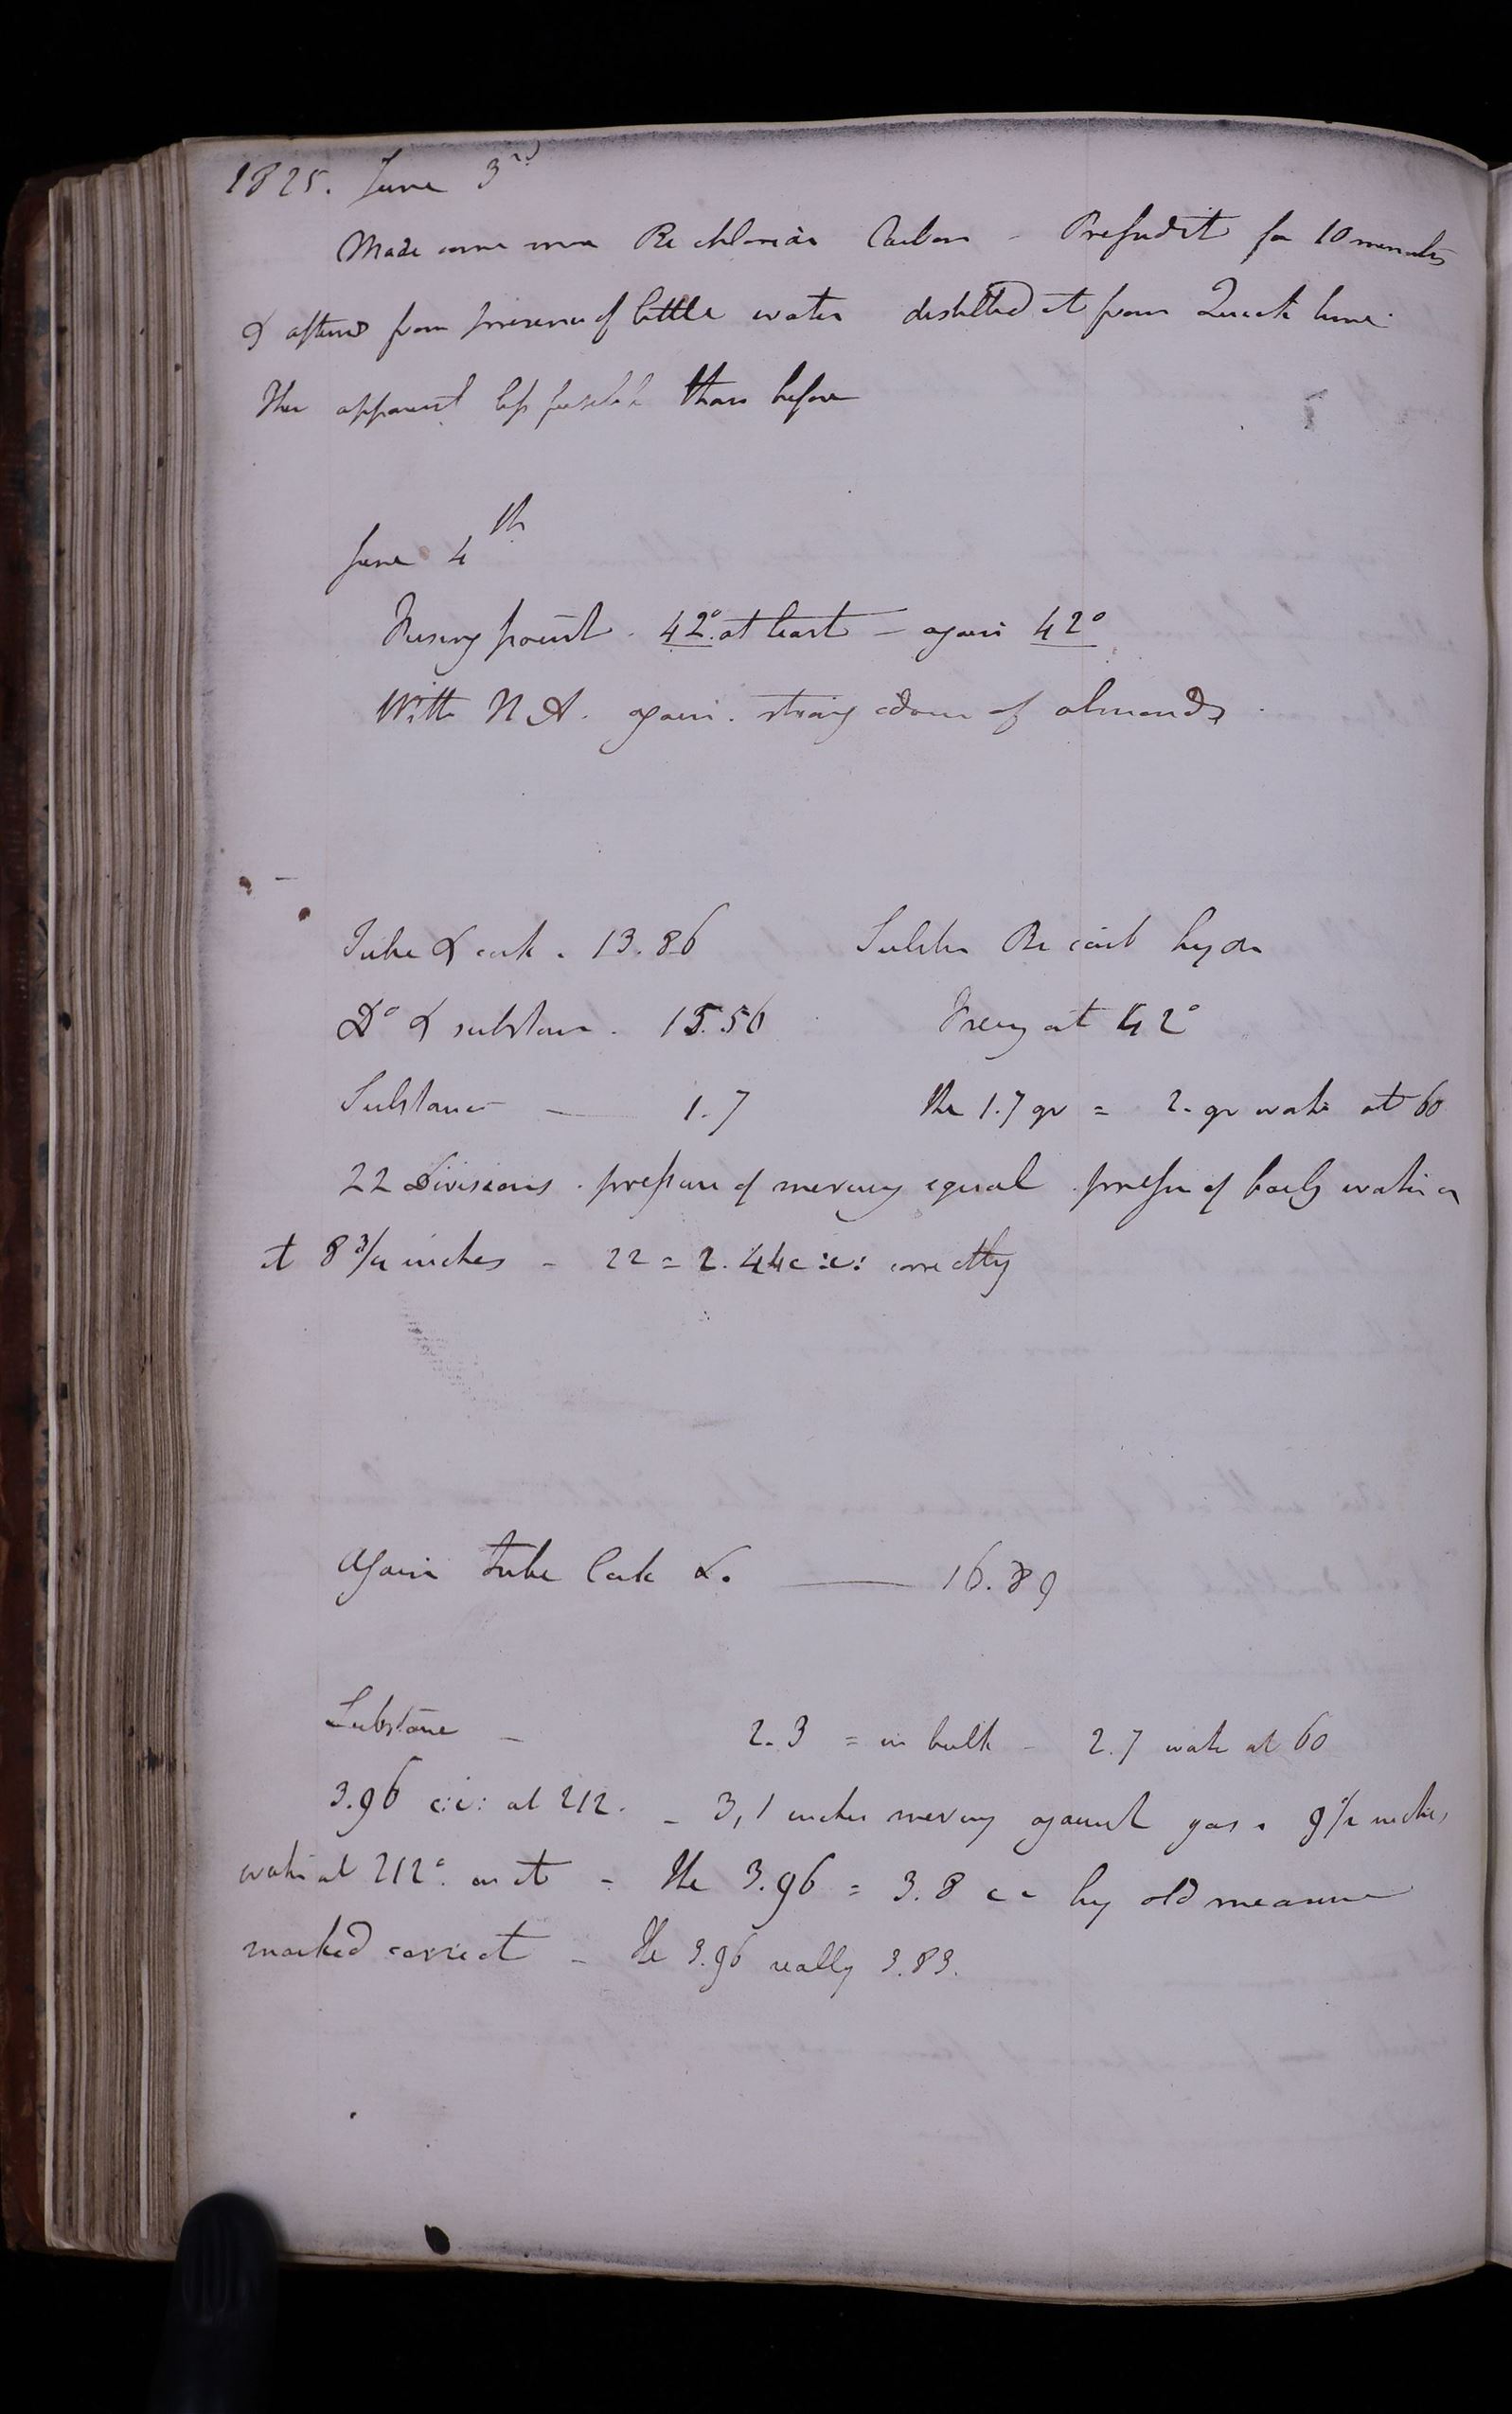 1825. June 3rd
Made some more Bi chloride Carbon - Pressed it for 10 minutes
& afterwd from presence of little water distilled it from Quick lime
Then apparent less fusible than before
June 4th
Freezing point. 42° at least - again 42°
With N A. again. strong odour of almonds.
Tube & cork. 13.86 Subst Bi carb hydr
Do & substance. 15.56 Freezg at 42°
Substance — 1.7 the 1.7 gr = 2. gr water at 60
22 divisions. pressure of mercury equal pressure of boilg water on
it 8 3/4 inches - 22 = 2.44 c:i: correctly
Again tube Cork &. — 16.89
Substance - 2.3 = in bulk - 2.7 water at 60
3.96 c:i: at 212. - 3,1 inches mercury against gas. 9 1/2 inches
water at 212°. on it - the 3.96 = 3.8 c c by old measure
marked correct - the 3.96 really 3.83.